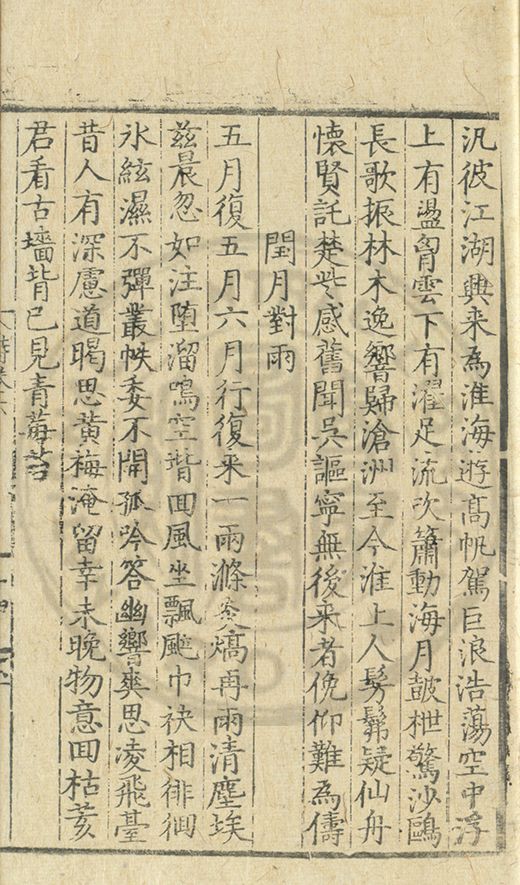 汎彼江湖興来為淮海遊髙帆駕巨浪浩蕩空中浮
上有盪胷雲下有濯足流吹簫動海月皷枻驚沙鷗
長歌振林木逸響歸滄洲至今淮上人髣髴疑仙舟
懐賢託楚些感舊聞吳謳寧無後来者俛仰難為儔
閏月對雨
五月復五月六月行復来一雨滌炎熇再雨清塵埃
兹晨忽如注堕溜鳴空堦回風坐飄颭巾袂相徘徊
氷絃濕不彈叢帙委不開孤吟答幽響爽思凌飛臺
昔人有深慮道暍思黄梅淹留幸未晚物意回枯荄
君看古墻背已見青莓苔